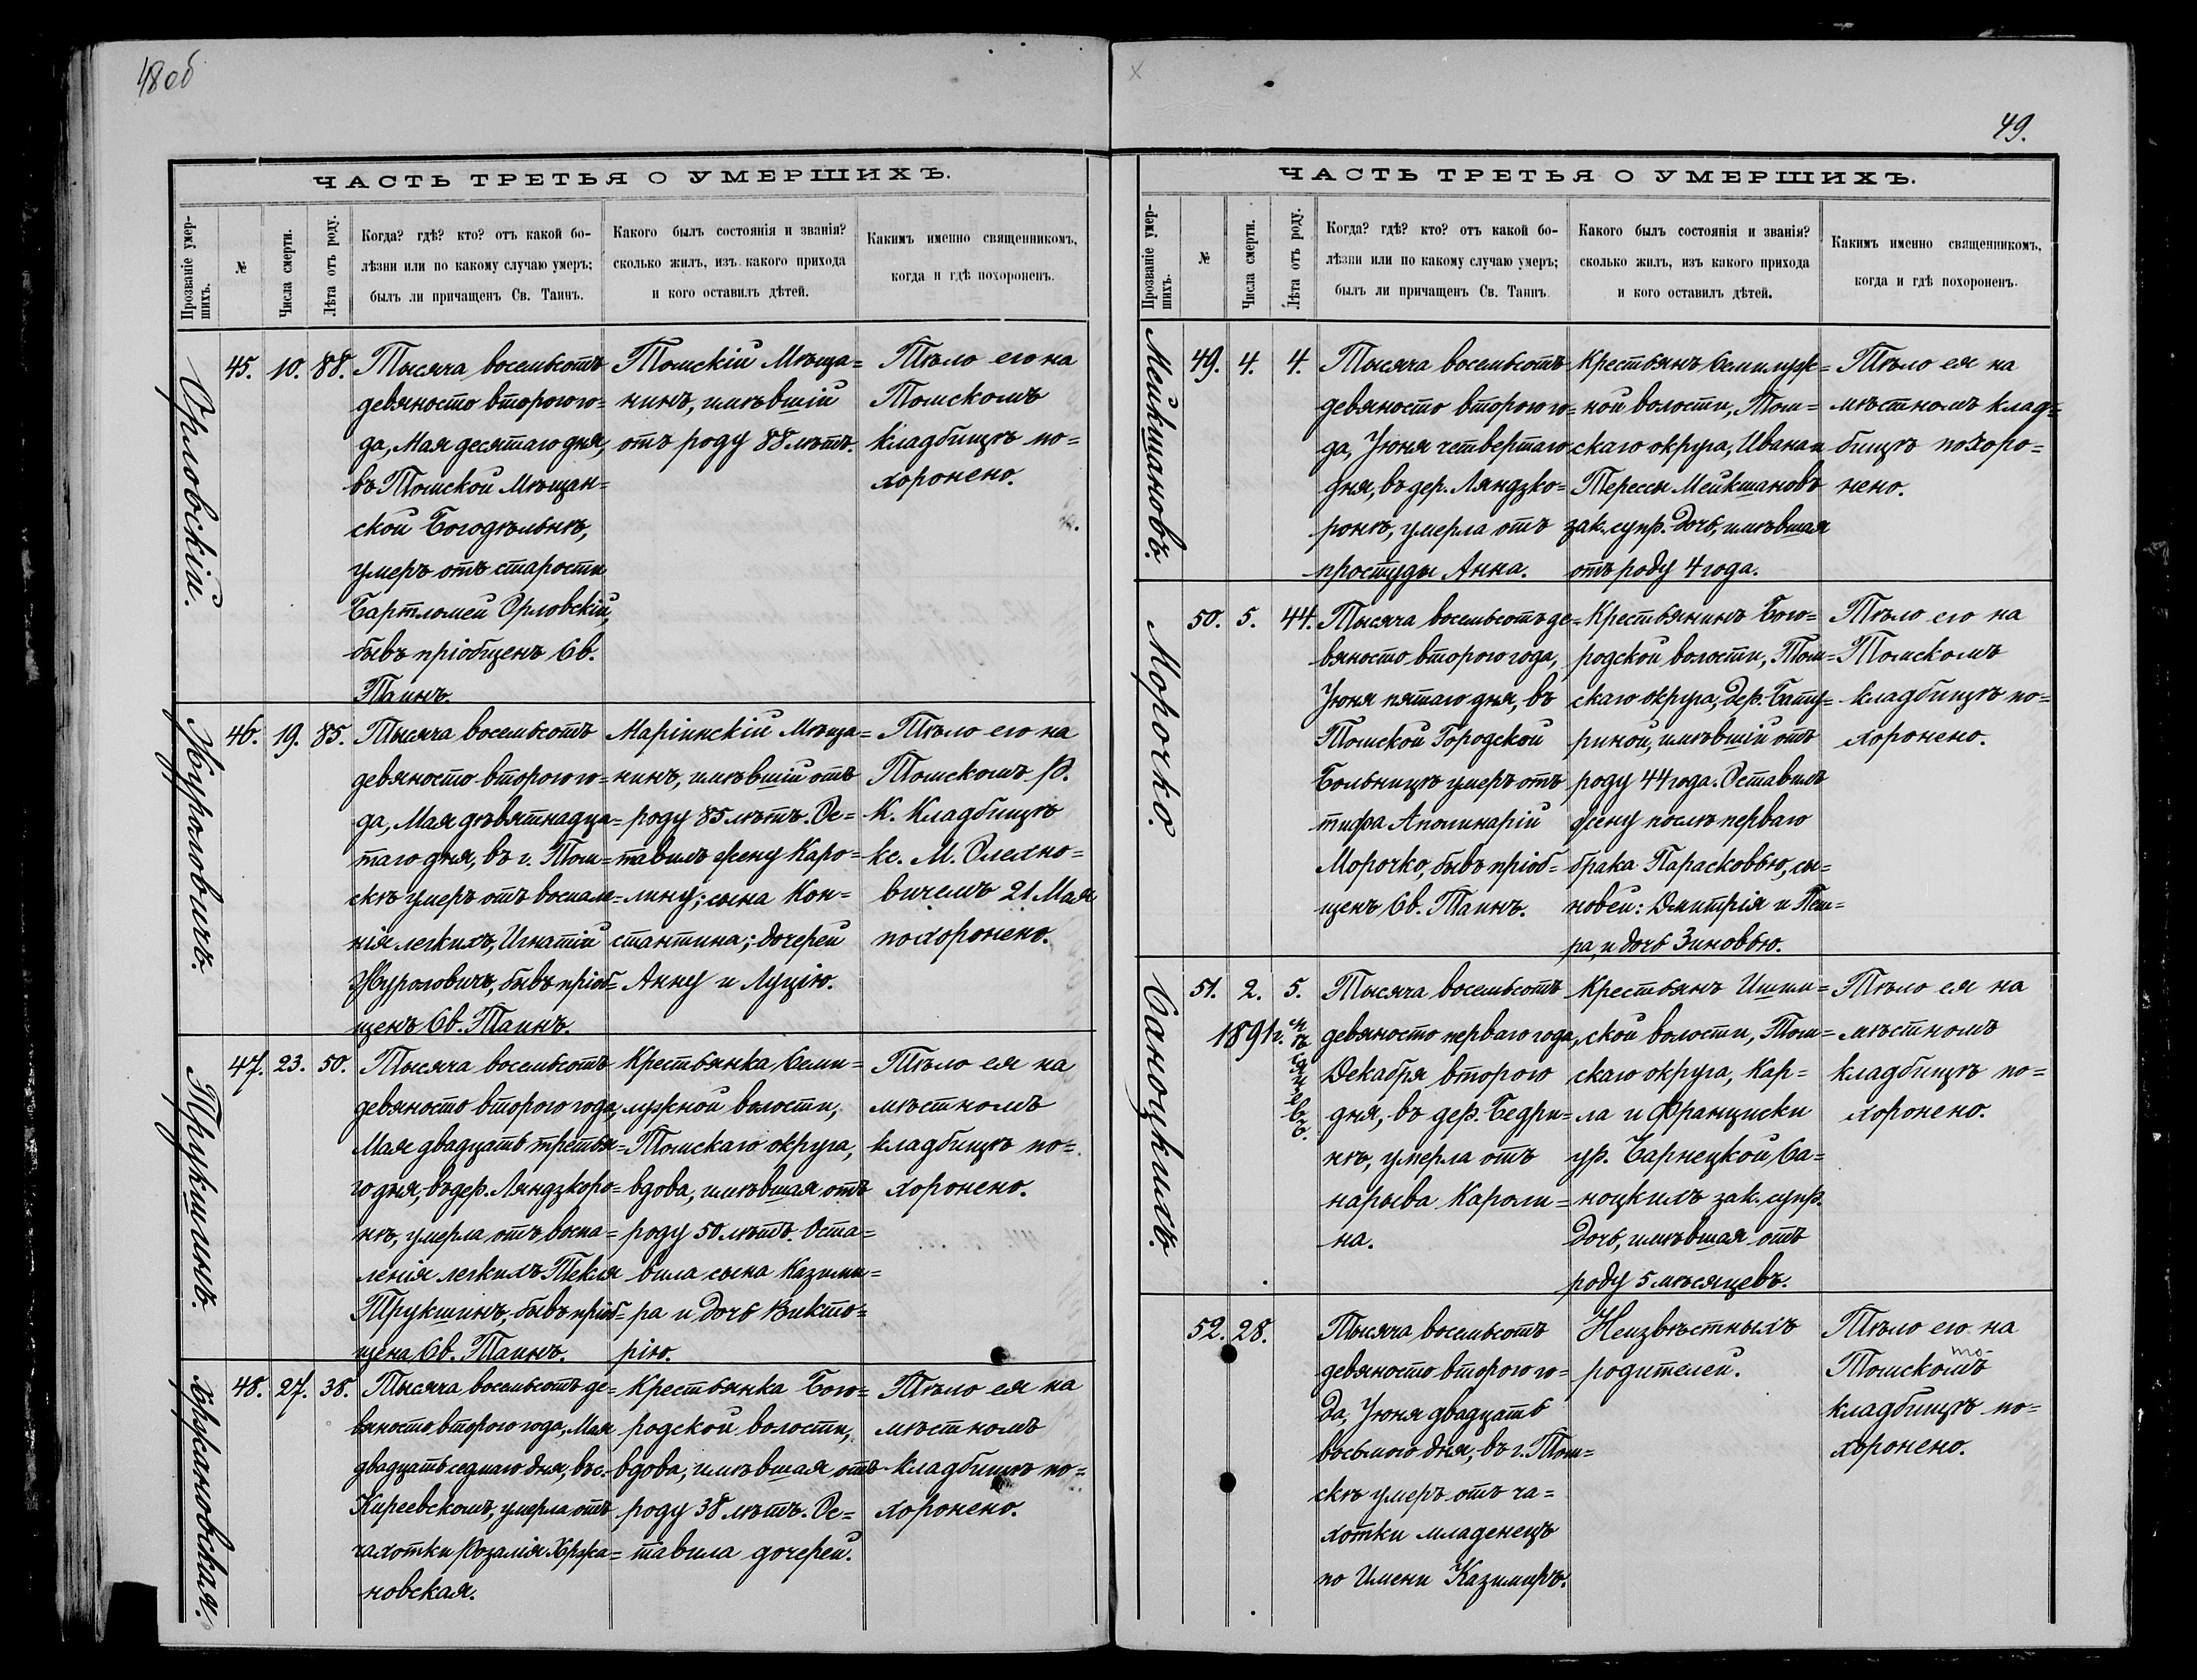 48 об
ЧАСТЬ ТРЕТЬЯ О УМЕРШИХЪ.
Прозваніе умер-
шихъ.
№
Числа смерти.
Лѣта отъ роду.
Когда? гдѣ? кто? отъ какой бо-
лѣзни или по какому случаю умеръ;
былъ ли причащенъ Св. Таинъ.
Какого былъ состоянія и званія?
сколько жилъ, изъ какого прихода
и кого оставилъ дѣтей.
Какимъ именно священникомъ,
когда и гдѣ похороненъ.
Орловскій.
45. 10. 88.
Тысяча восемьсотъ
девяносто второго го=
да, Мая десятаго дня,
въ Томской Мѣщан=
ской Богодѣльнѣ,
умеръ отъ старости
Бартломей Орловскій,
бывъ пріобщенъ Св.
Таинъ.
Томскій Мѣща=
нинъ, имѣвшій
отъ роду 88 лѣтъ.
Тѣло его на
Томскомъ
кладбищѣ по=
хоронено.
Журоловичъ.
46. 19. 85.
Тысяча восемьсотъ
девяносто второго го=
да, Мая дѣвятнадца=
таго дня, въ г. Том=
скѣ умеръ отъ воспале=
нія легкихъ, Игнатій
Журоловичъ, бывъ пріоб=
щенъ Св. Таинъ.
Маріинскій Мѣща=
нинъ, имѣвшій отъ
роду 85 лѣтъ. Ос=
тавилъ жену Каро=
лину; сына Кон=
стантина; дочерей
Анну и Луцію.
Тѣло его на
Томскомъ Р.
К. Кладбищѣ
кс. М. Олехно=
вичемъ 21 Мая
похоронено.
Трукшинъ.
47. 23. 50.
Тысяча восемьсотъ
девяносто второго года,
Мая двадцать третья=
го дня, въ дер. Ляндзкоро=
нѣ, умерла отъ воспа=
ленія легкихъ Текля
Трукшинъ, бывъ пріоб=
щена Св. Таинъ.
Крестьянка Семи=
лужной волости,
Томскаго округа,
вдова, имѣвшая отъ
роду 50 лѣтъ. Оста=
вила сына Казими=
ра и дочь Викто=
рію.
Тѣло ея на
мѣстномъ
кладбищѣ по=
хоронено.
Хржановская.
48. 27. 38.
Тысяча восемьсотъ де=
вяносто второго года, Мая
двадцать седмаго дня, въ с.
Киреевскомъ, умерла отъ
чахотки Розалія Хржа=
новская.
Крестьянка Бого=
родской волости,
вдова, имѣвшая отъ
роду 38 лѣтъ. Ос=
тавила дочерей.
Тѣло ея на
мѣстномъ
кладбищѣ по=
хоронено.
49.
ЧАСТЬ ТРЕТЬЯ О УМЕРШИХЪ.
Прозваніе умер-
шихъ.
№
Числа смерти.
Лѣта отъ роду.
Когда? гдѣ? кто? отъ какой бо-
лѣзни или по какому случаю умеръ;
былъ ли причащенъ Св. Таинъ.
Какого былъ состоянія и званія?
сколько жилъ, изъ какого прихода
и кого оставилъ дѣтей.
Какимъ именно священникомъ,
когда и гдѣ похороненъ.
Мейкшановъ.
49. 4. 4.
Тысяча восемьсотъ
девяносто второго го=
да, Іюня четвертаго
дня, въ дер. Ляндзко=
ронѣ, умерла отъ
простуды Анна.
Крестьянъ Семилуж=
ной волости, Том=
скаго округа, Ивана и
Терессы Мейкшановъ
зак. супр. дочь, имѣвшая
отъ роду 4 года.
Тѣло ея на
мѣстномъ клад=
бищѣ похоро=
нено.
Морочко.
50. 5. 44.
Тысяча восемьсотъ де=
вяносто второго года,
Іюня пятаго дня, въ
Томской Городской
Больницѣ умеръ отъ
тифа Аполинарій
Морочко, бывъ пріоб=
щенъ Св. Таинъ.
Крестьянинъ Бого=
родской волости, Том=
скаго округа, дер. Бату=
риной, имѣвшій отъ
роду 44 года. Оставилъ
жену послѣ перваго
брака Парасковью, сы=
новей: Дмитрія и Пет=
ра, и дочь Зиновью.
Тѣло его на
Томскомъ
кладбищѣ по=
хоронено.
Саноцкихъ.
51. 2. 5.
1891 г. мѣсяцевъ.
Тысяча восемьсотъ
девяносто перваго года,
Декабря второго
дня, въ дер. Бедри=
нѣ, умерла отъ
нарыва Кароли=
на.
Крестьянъ Ишим=
ской волости, Том=
скаго округа, Кар=
ла и Франциски
ур. Чарнецкой Са=
ноцкихъ зак. супр.
дочь, имѣвшая отъ
роду 5 мѣсяцевъ.
Тѣло ея на
мѣстномъ
кладбищѣ по=
хоронено.
52. 28.
Тысяча восемьсотъ
девяносто второго го=
да, Іюня двадцать
восьмого дня, въ г. Том=
скѣ умеръ отъ ча=
хотки младенецъ
по имени Казимиръ.
Неизвѣстныхъ
родителей.
Тѣло его на
Томскомъ
кладбищѣ по=
хоронено.